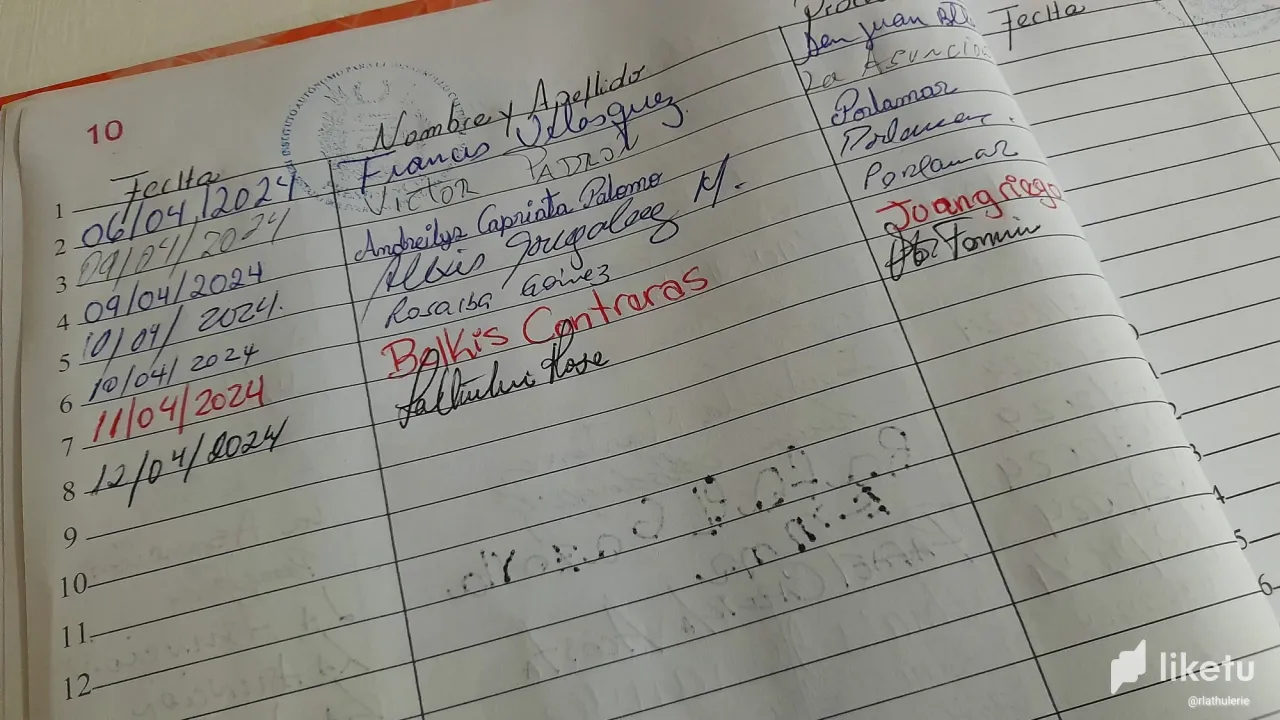 10
INSTITUTO AUTONOMO PARA EL
Fecha Nombre y Apellido Fecha
1 06/04/2024 Francis Velasquez San Juan Bta
2 09/04/2024 Victor PADRON La ASUNCION
3 09/04/2024 Andreilys Capriata Palomo Porlamar
4 10/04/2024. Alexis M. Porlamar.
5 10/04/2024 Rosalba Gómez Porlamar
6 11/04/2024 Balkis Contreras Juangriego
7 12/04/2024 Rose
8
9
10
11
12
2
3
4
5
6
liketu
@rlathulerie